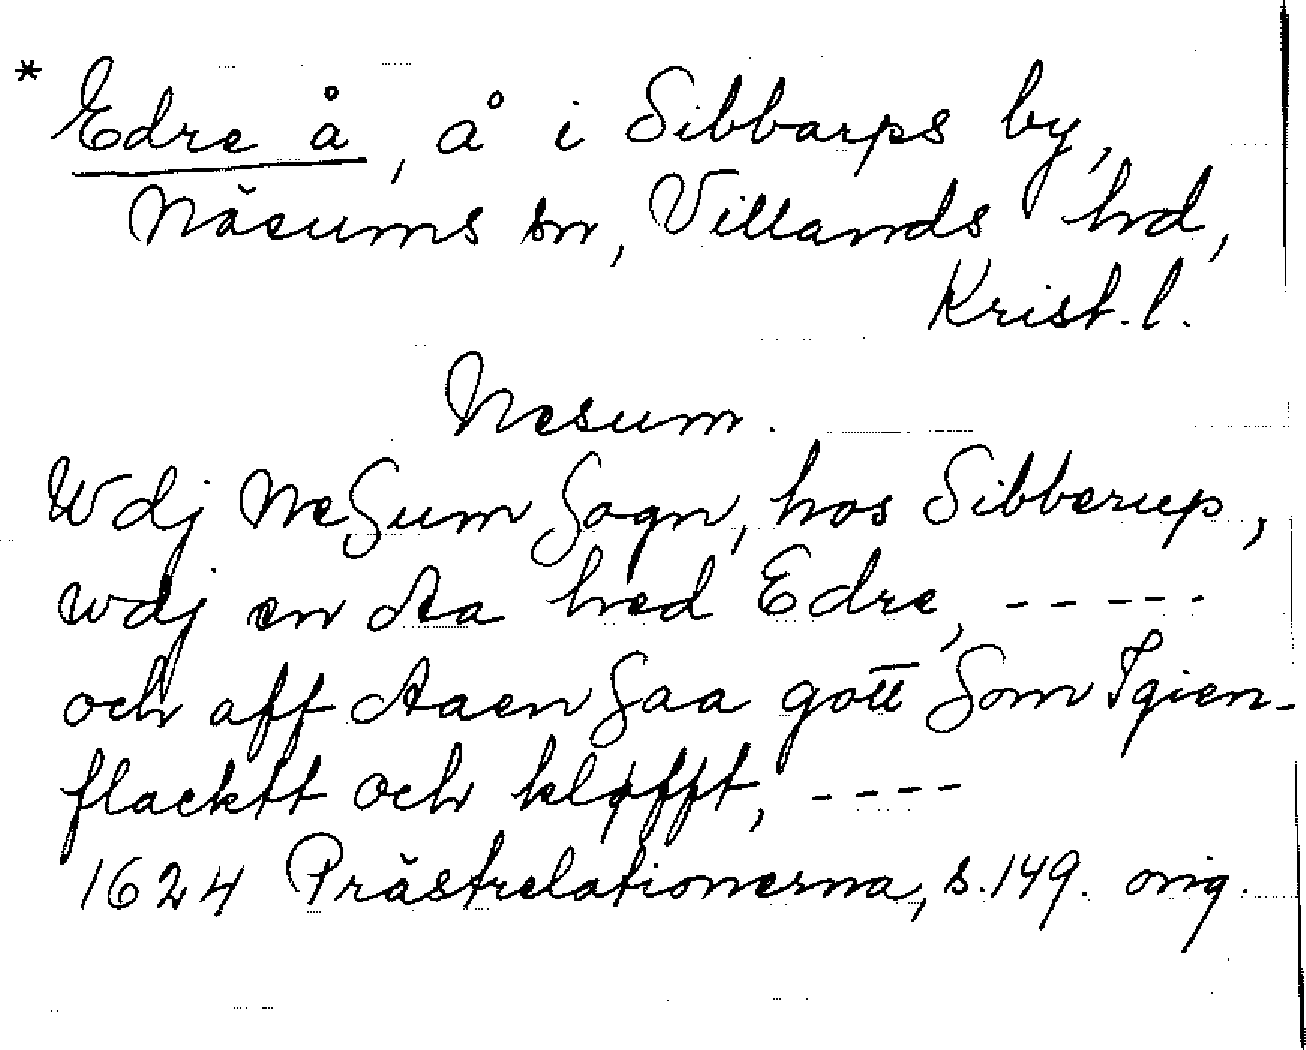 * Edre å, å i Sibbarps by,
Näsums sn, Villands hd,
Krist. l.
Nesum.
Wdj Nesum Sogn, hos Sibberup,
wdj en Aa hed Edre, -----
och aff Aaen saa gott som Igien-
flacktt och kløfft, ----
1624 Prästrelationerna, s. 149. orig.